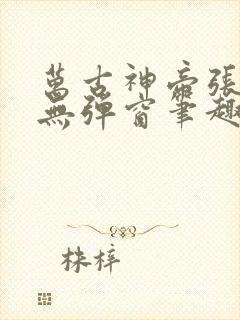 萬古神帝張
無彈窗筆趣
株梓